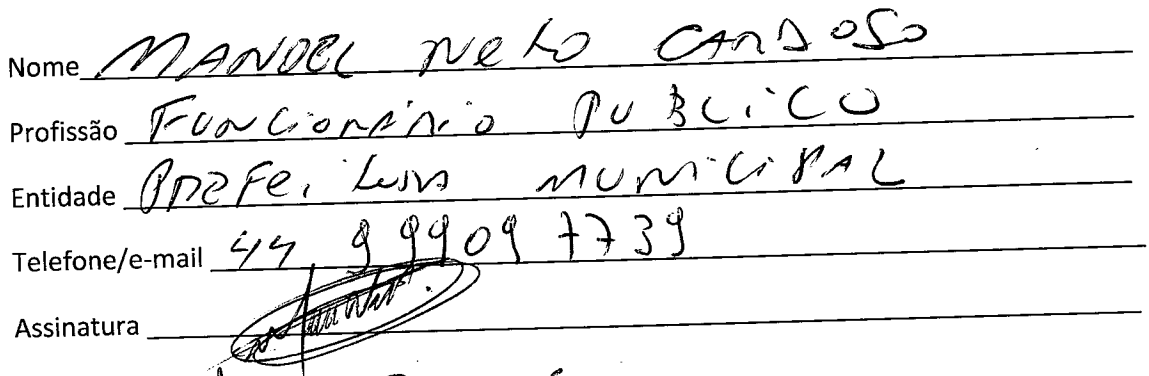 Nome MANOEL Neto CARDOSO
Profissão FUNCionÁRiO PUBLiCO
Entidade PREFEiTURA MUNiCiPAL
Telefone/e-mail 44 999097739
Assinatura